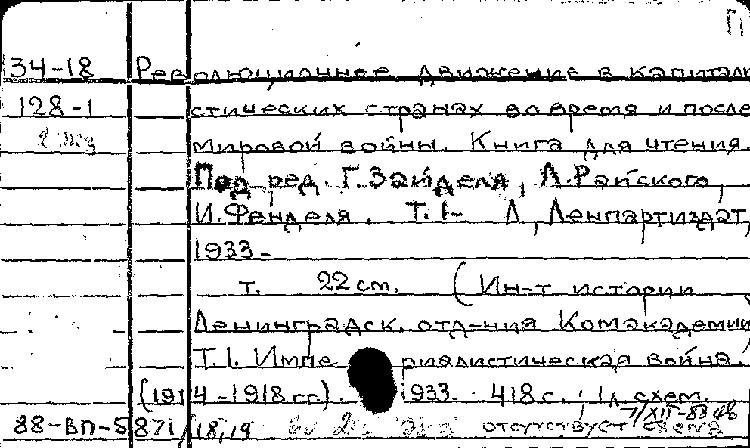 34-18 Революционное движение в капитали
128-1 стических странах во время и после
2 экз мировой войны. Книга для чтения.
Под ред. Г. Зайделя, Л. Райского,
И. Фенделя. Т. 1- Л., Ленпартиздат,
1933-
т. 22 см. (Ин-т истории
Ленинградск. отд-ния Комакадемии)
Т. 1. Империалистическая война.
(1914-1918 гг). 1933. 418 с.; 1 л схем.
88-ВП-5871/18,19 отсутствует схема